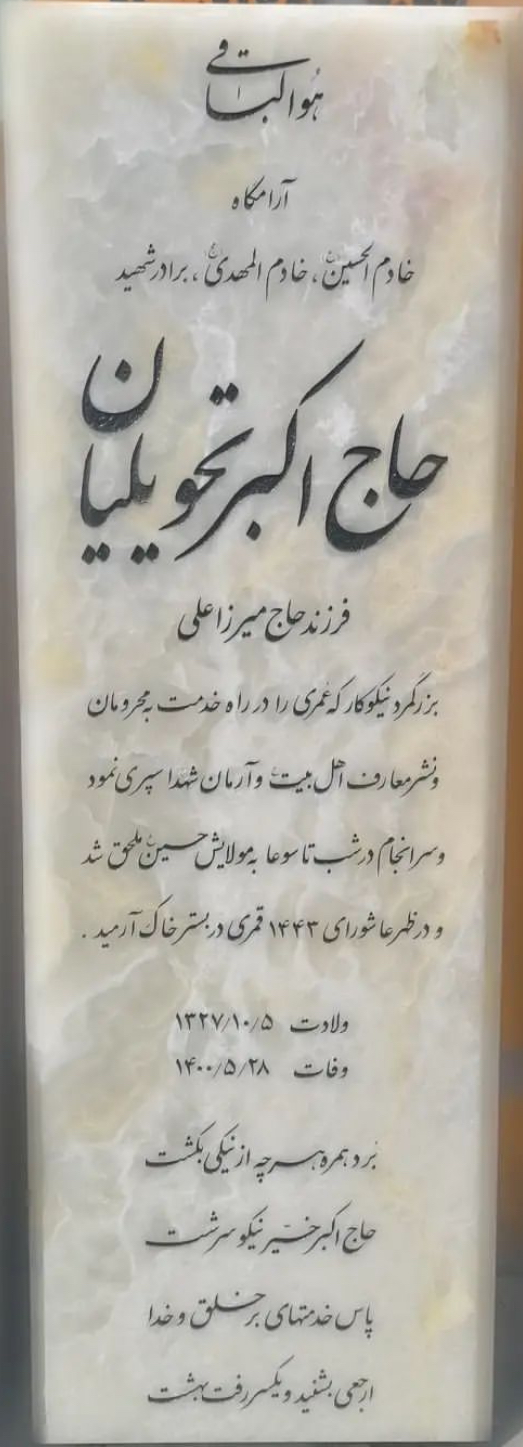 هوالباقی
آرامگاه
خادم الحسین(ع)، خادم المهدی(عج)، برادر شهید
حاج اکبر تحویلیان
فرزند حاج میرزا علی
بزرگمرد نیکوکار که عُمری را در راه خدمت به محرومان
و نشر معارف اهل بیت(ع) و آرمان شهدا سپری نمود
و سرانجام در شب تاسوعا به مولایش حسین(ع) ملحق شد
و در ظهر عاشورای ۱۴۴۳ قمری در بستر خاک آرمید .
ولادت ۱۳۲۷/۱۰/۵
وفات ۱۴۰۰/۵/۲۸
بُرد همره هر چه از نیکی بکشت
حاج اکبر خیّر نیکو سرشت
پاس خدمتهای بر خلق و خدا
ارجعی بشنید و یکسر رفت بهشت